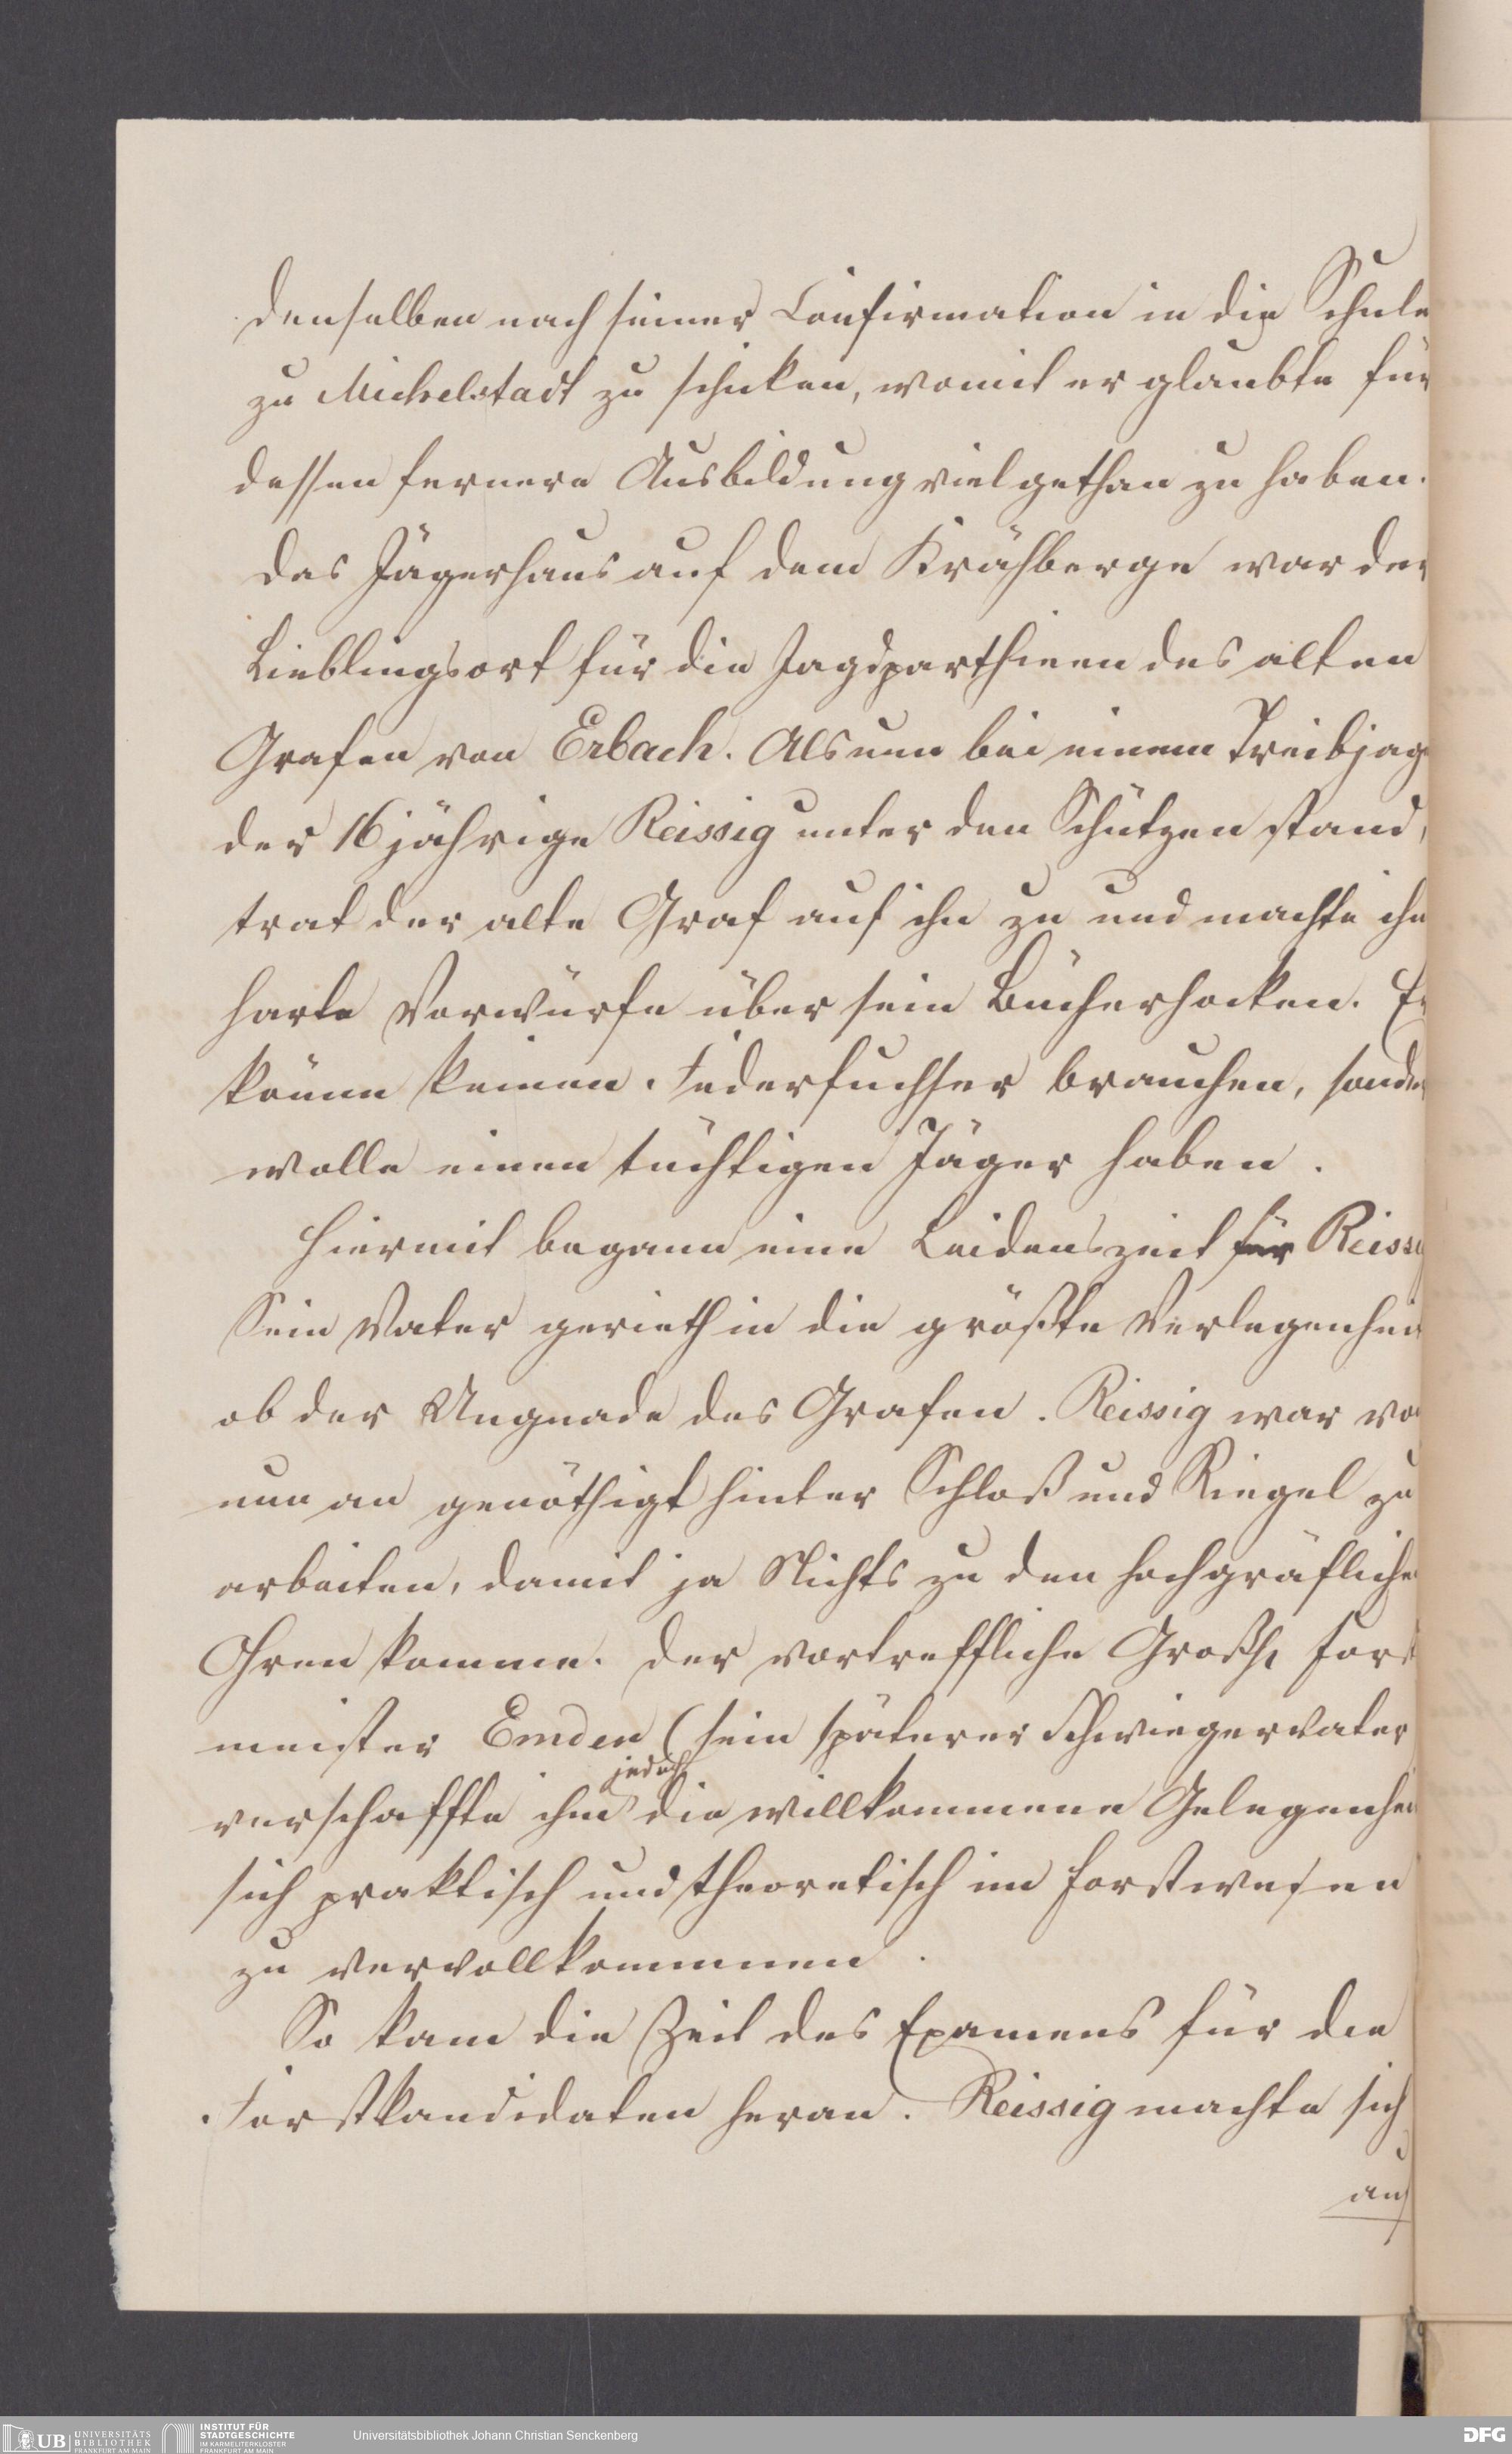 denselben nach seiner Confirmation in die Schule
zu Michelstadt zu schicken, womit er glaubte für
dessen fernere Ausbildung viel gethan zu haben.
Das Jägerhaus auf dem Krähberge war der
Lieblingsort für die Jagdparthieen des alten
Grafen von Erbach. Als nun bei einem Treibjag
der 16jährige Reissig unter den Schützen stand,
trat der alte Graf auf ihn zu und machte ihm
harte Vorwürfe über sein Bücherhocken. Er
könne keinen Federfuchser brauchen, sonder
wolle einen tüchtigen Jäger haben.
Hiermit begann eine Leidenszeit für Reissig
Sein Vater gerieth in die größte Verlegenheit
ob der Ungnade des Grafen. Reissig war von
nun an genöthigt hinter Schloß und Riegel zu
arbeiten, damit ja Nichts zu den hochgräflichen
Ohren komme. Der vortreffliche Großh. Forst
meister Emden (sein späterer Schwiegervater
jedoch
verschaffte ihm die willkommene Gelegenheit
sich praktisch und theoretisch im Forstwesen
zu vervollkommnen.
So kam die Zeit des Examens für die
Forstkandidaten heran. Reissig machte sich
auf
UB UNIVERSITÄTS BIBLIOTHEK FRANKFURT AM MAIN
INSTITUT FÜR STADTGESCHICHTE IM KARMELITERKLOSTER FRANKFURT AM MAIN
Universitätsbibliothek Johann Christian Senckenberg
DFG